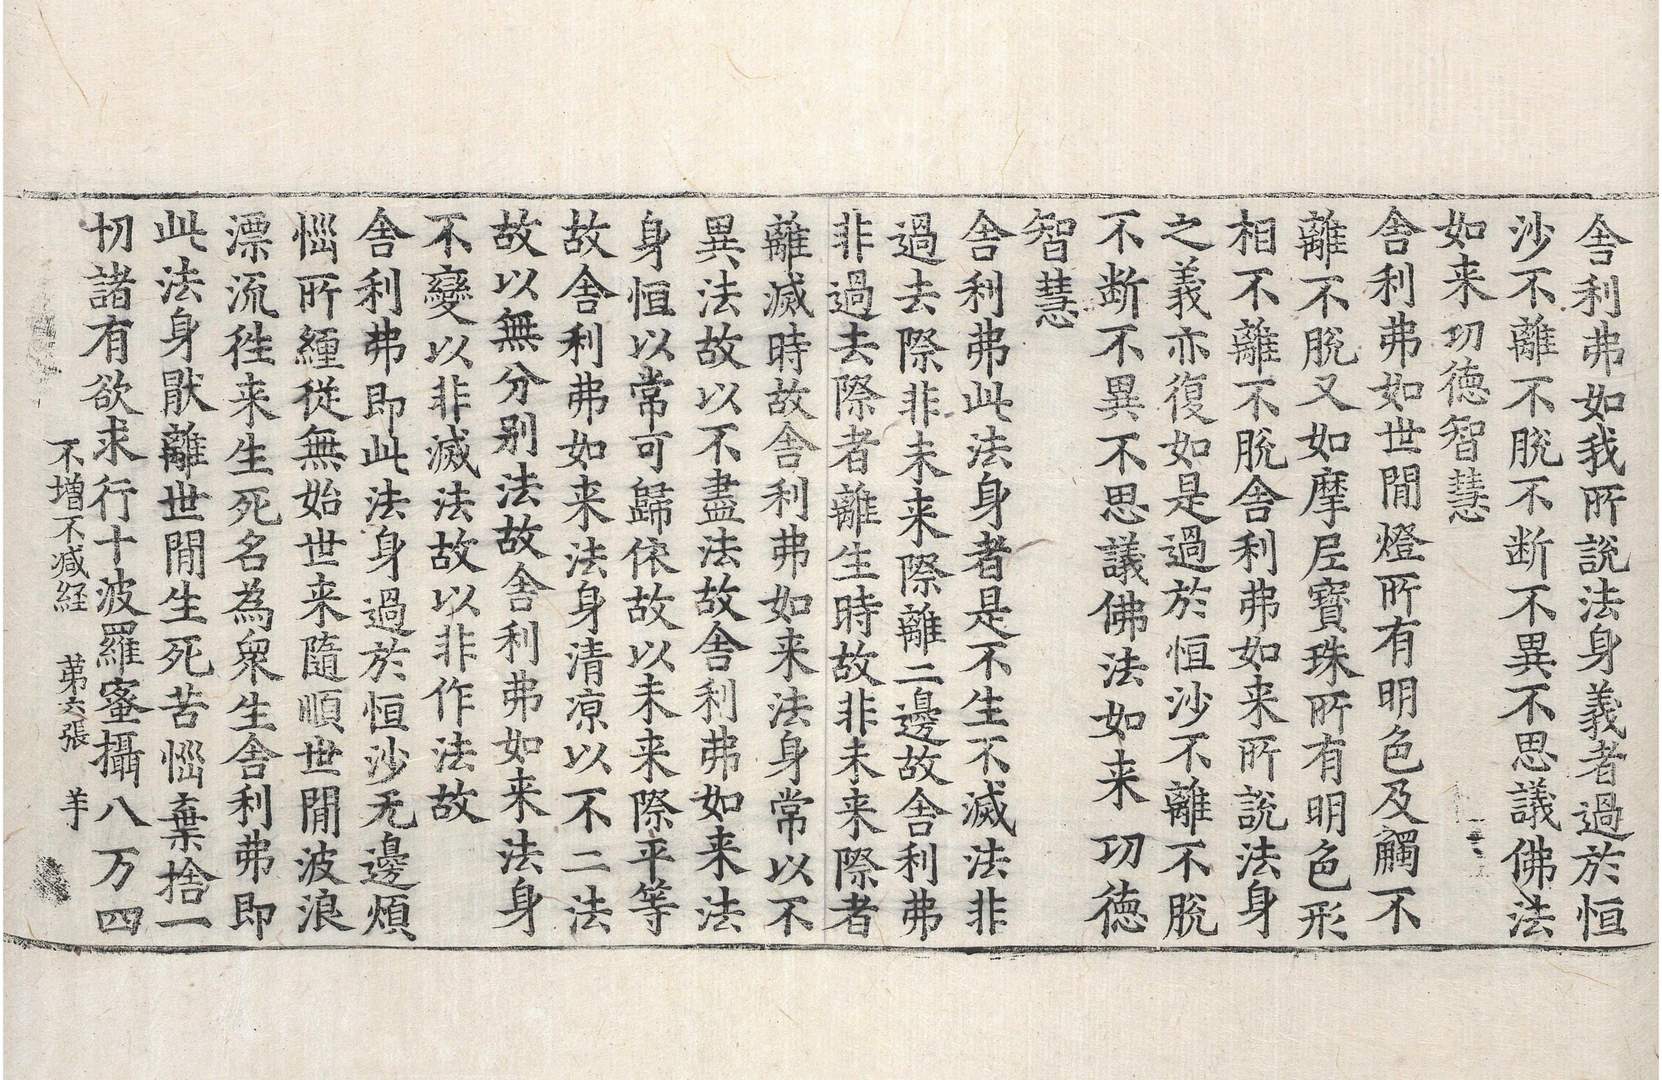 舍利弗如我所說法身義者過於恒
沙不離不脫不断不異不思議佛法
如来功德智慧
舍利弗如世間燈所有明色及觸不
離不脫又如摩尼寶珠所有明色形
相不離不脫舍利弗如来所說法身
之義亦復如是過於恒沙不離不脫
不断不異不思議佛法如来功德
智慧
舍利弗此法身者是不生不滅法非
過去際非未来際離二邊故舍利弗
非過去際者離生時故非未来際者
離滅時故舍利弗如来法身常以不
異法故以不盡法故舍利弗如来法
身恒以常可歸依故以未来際平等
故舍利弗如来法身清凉以不二法
故以無分別法故舍利弗如来法身
不變以非滅法故以非作法故
舍利弗即此法身過於恒沙无邊煩
惱所纏從無始世来隨順世間波浪
漂流徃来生死名為衆生舍利弗即
此法身猒離世間生死苦惱棄捨一
切諸有欲求行十波羅蜜攝八万四
不增不减経　第六張　羊